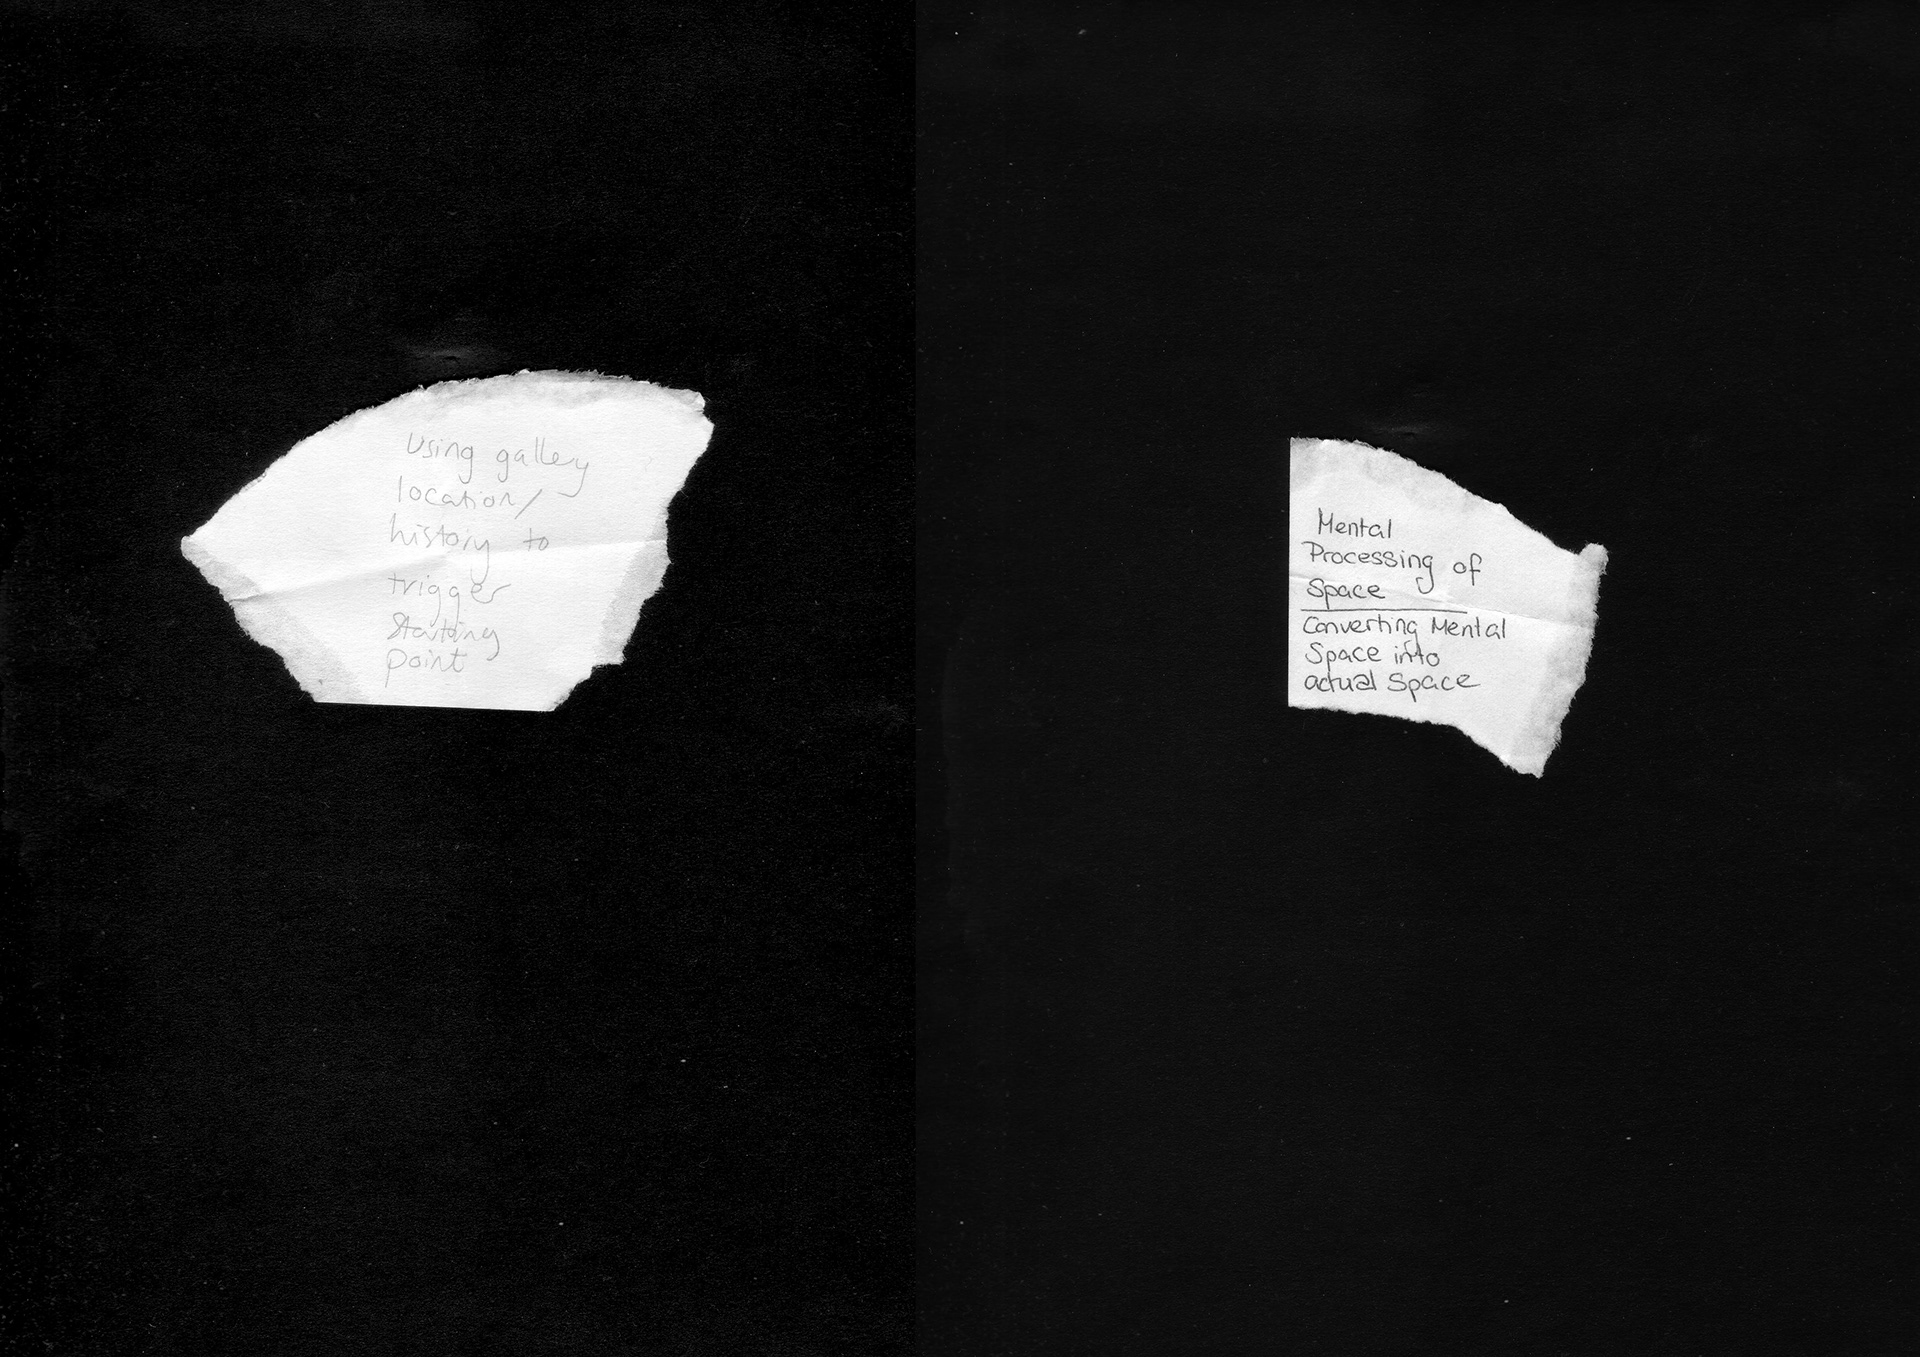 Using gallery
location/
history to
trigger
starting
point
Mental
Processing of
Space
Converting Mental
Space into
actual Space